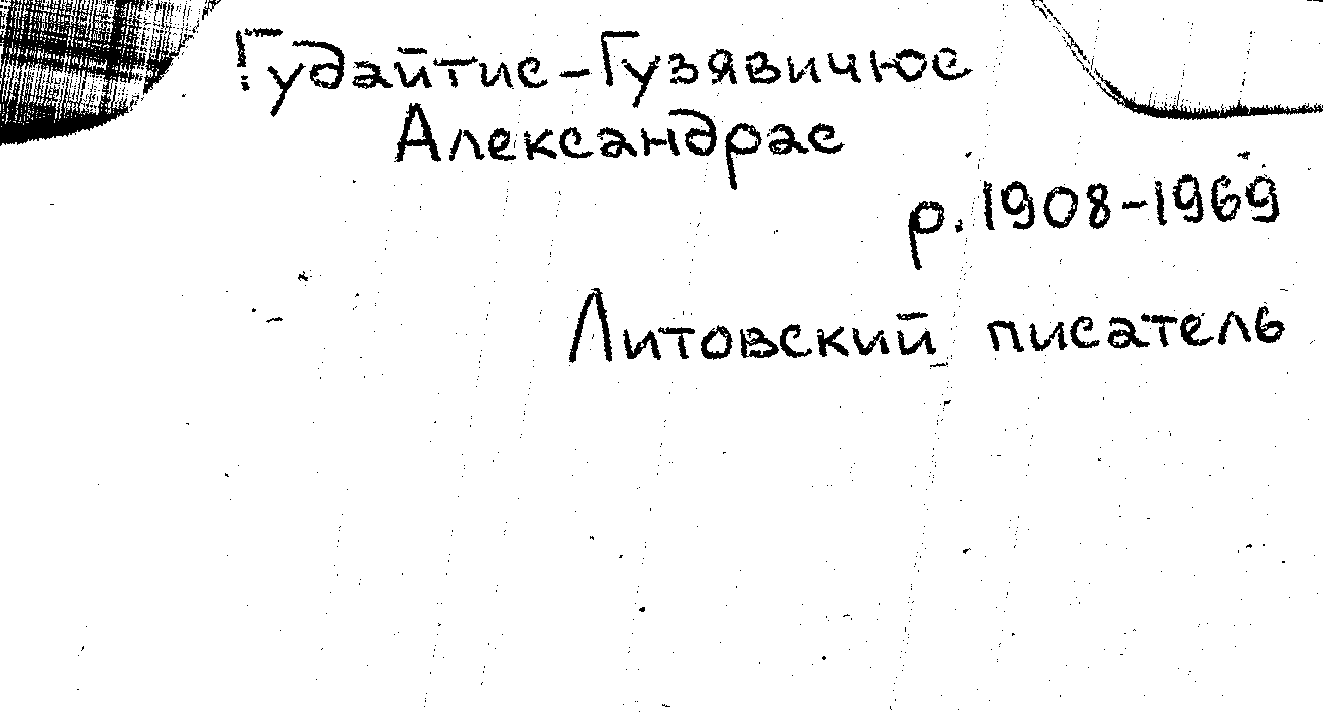 Гудайтис-Гузявичюс
Александрас
р. 1908-1969
Литовский писатель